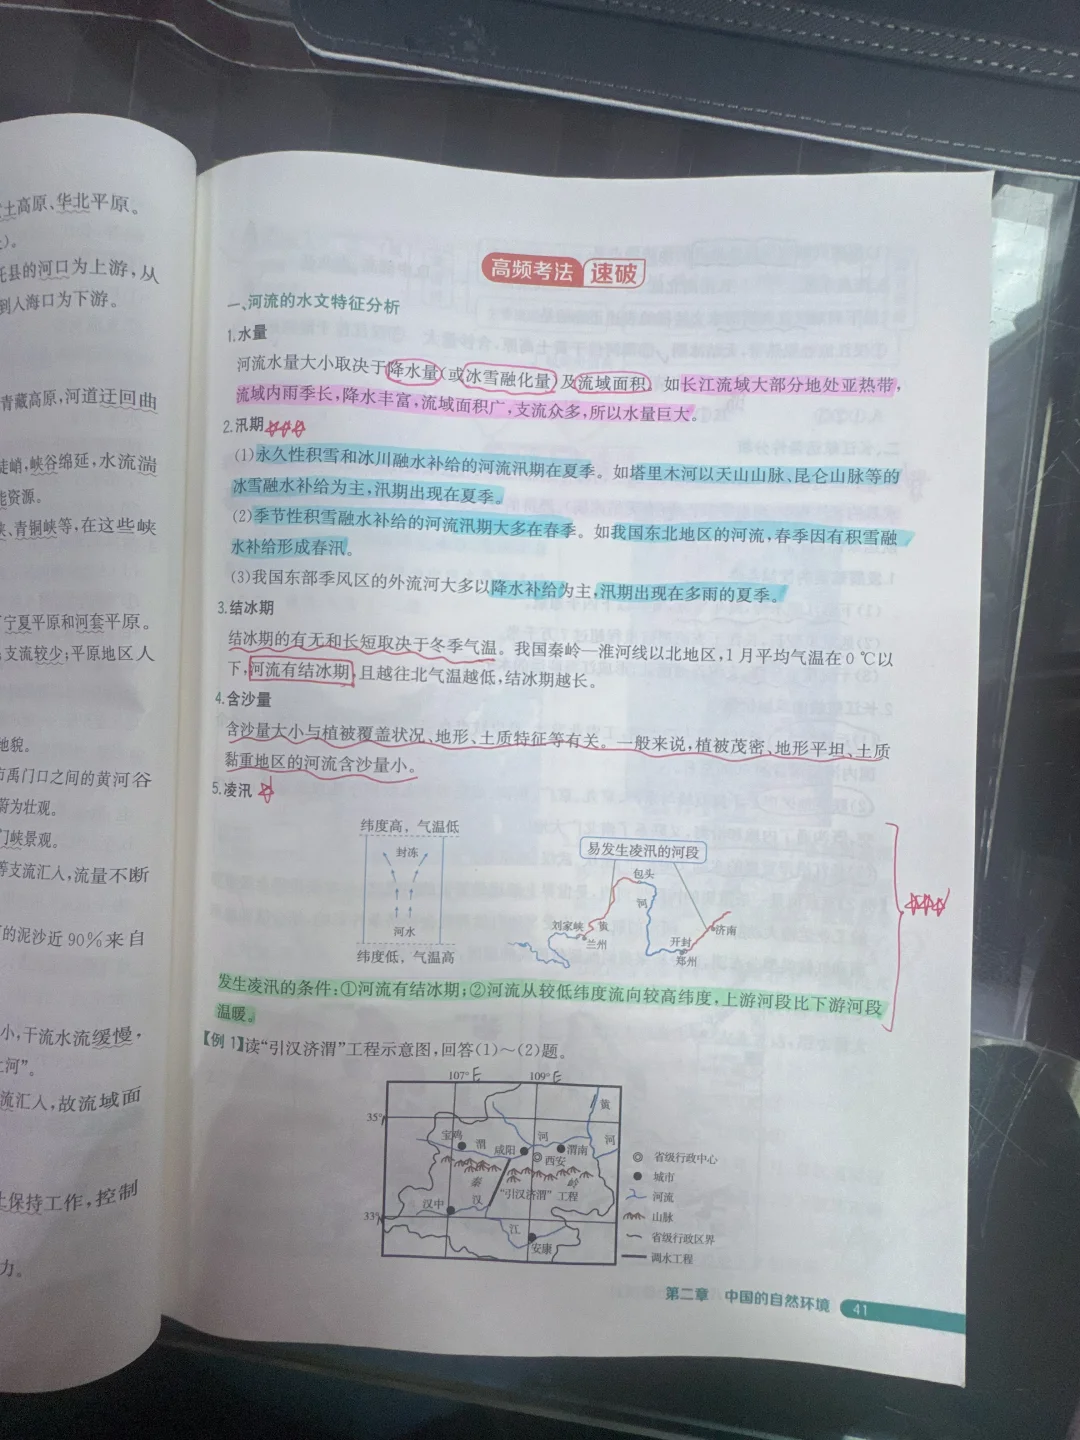 土高原、华北平原。
托县的河口为上游,从
到入海口为下游。
青藏高原,河道迂回曲
陡峭,峡谷绵延,水流湍
能资源。
峡、青铜峡等,在这些峡
宁夏平原和河套平原。
支流较少;平原地区人
地貌。
市禹门口之间的黄河谷
蔚为壮观。
门峡景观。
等支流汇入,流量不断
的泥沙近90%来自
小,干流水流缓慢,
上河”。
流汇入,故流域面
土保持工作,控制
力。
高频考法 速破
一、河流的水文特征分析
1.水量
河流水量大小取决于降水量(或冰雪融化量)及流域面积。如长江流域大部分地处亚热带,
流域内雨季长,降水丰富,流域面积广,支流众多,所以水量巨大。
2.汛期
(1)永久性积雪和冰川融水补给的河流汛期在夏季。如塔里木河以天山山脉、昆仑山脉等的
冰雪融水补给为主,汛期出现在夏季。
(2)季节性积雪融水补给的河流汛期大多在春季。如我国东北地区的河流,春季因有积雪融
水补给形成春汛。
(3)我国东部季风区的外流河大多以降水补给为主,汛期出现在多雨的夏季。
3.结冰期
结冰期的有无和长短取决于冬季气温。我国秦岭—淮河线以北地区,1月平均气温在0℃以
下,河流有结冰期,且越往北气温越低,结冰期越长。
4.含沙量
含沙量大小与植被覆盖状况、地形、土质特征等有关。一般来说,植被茂密、地形平坦、土质
黏重地区的河流含沙量小。
5.凌汛
纬度高,气温低
封冻
河水
纬度低,气温高
易发生凌汛的河段
包头
河
刘家峡
黄
兰州
济南
开封
郑州
发生凌汛的条件:①河流有结冰期;②河流从较低纬度流向较高纬度,上游河段比下游河段
温暖。
【例1】读“引汉济渭”工程示意图,回答(1)～(2)题。
107°E 109°E
35°
黄
河
宝鸡 渭 咸阳 河 渭南
西安
秦 岭
“引汉济渭”工程
汉中 汉
33°
江
安康
省级行政中心
城市
河流
山脉
省级行政区界
调水工程
第二章 中国的自然环境 41